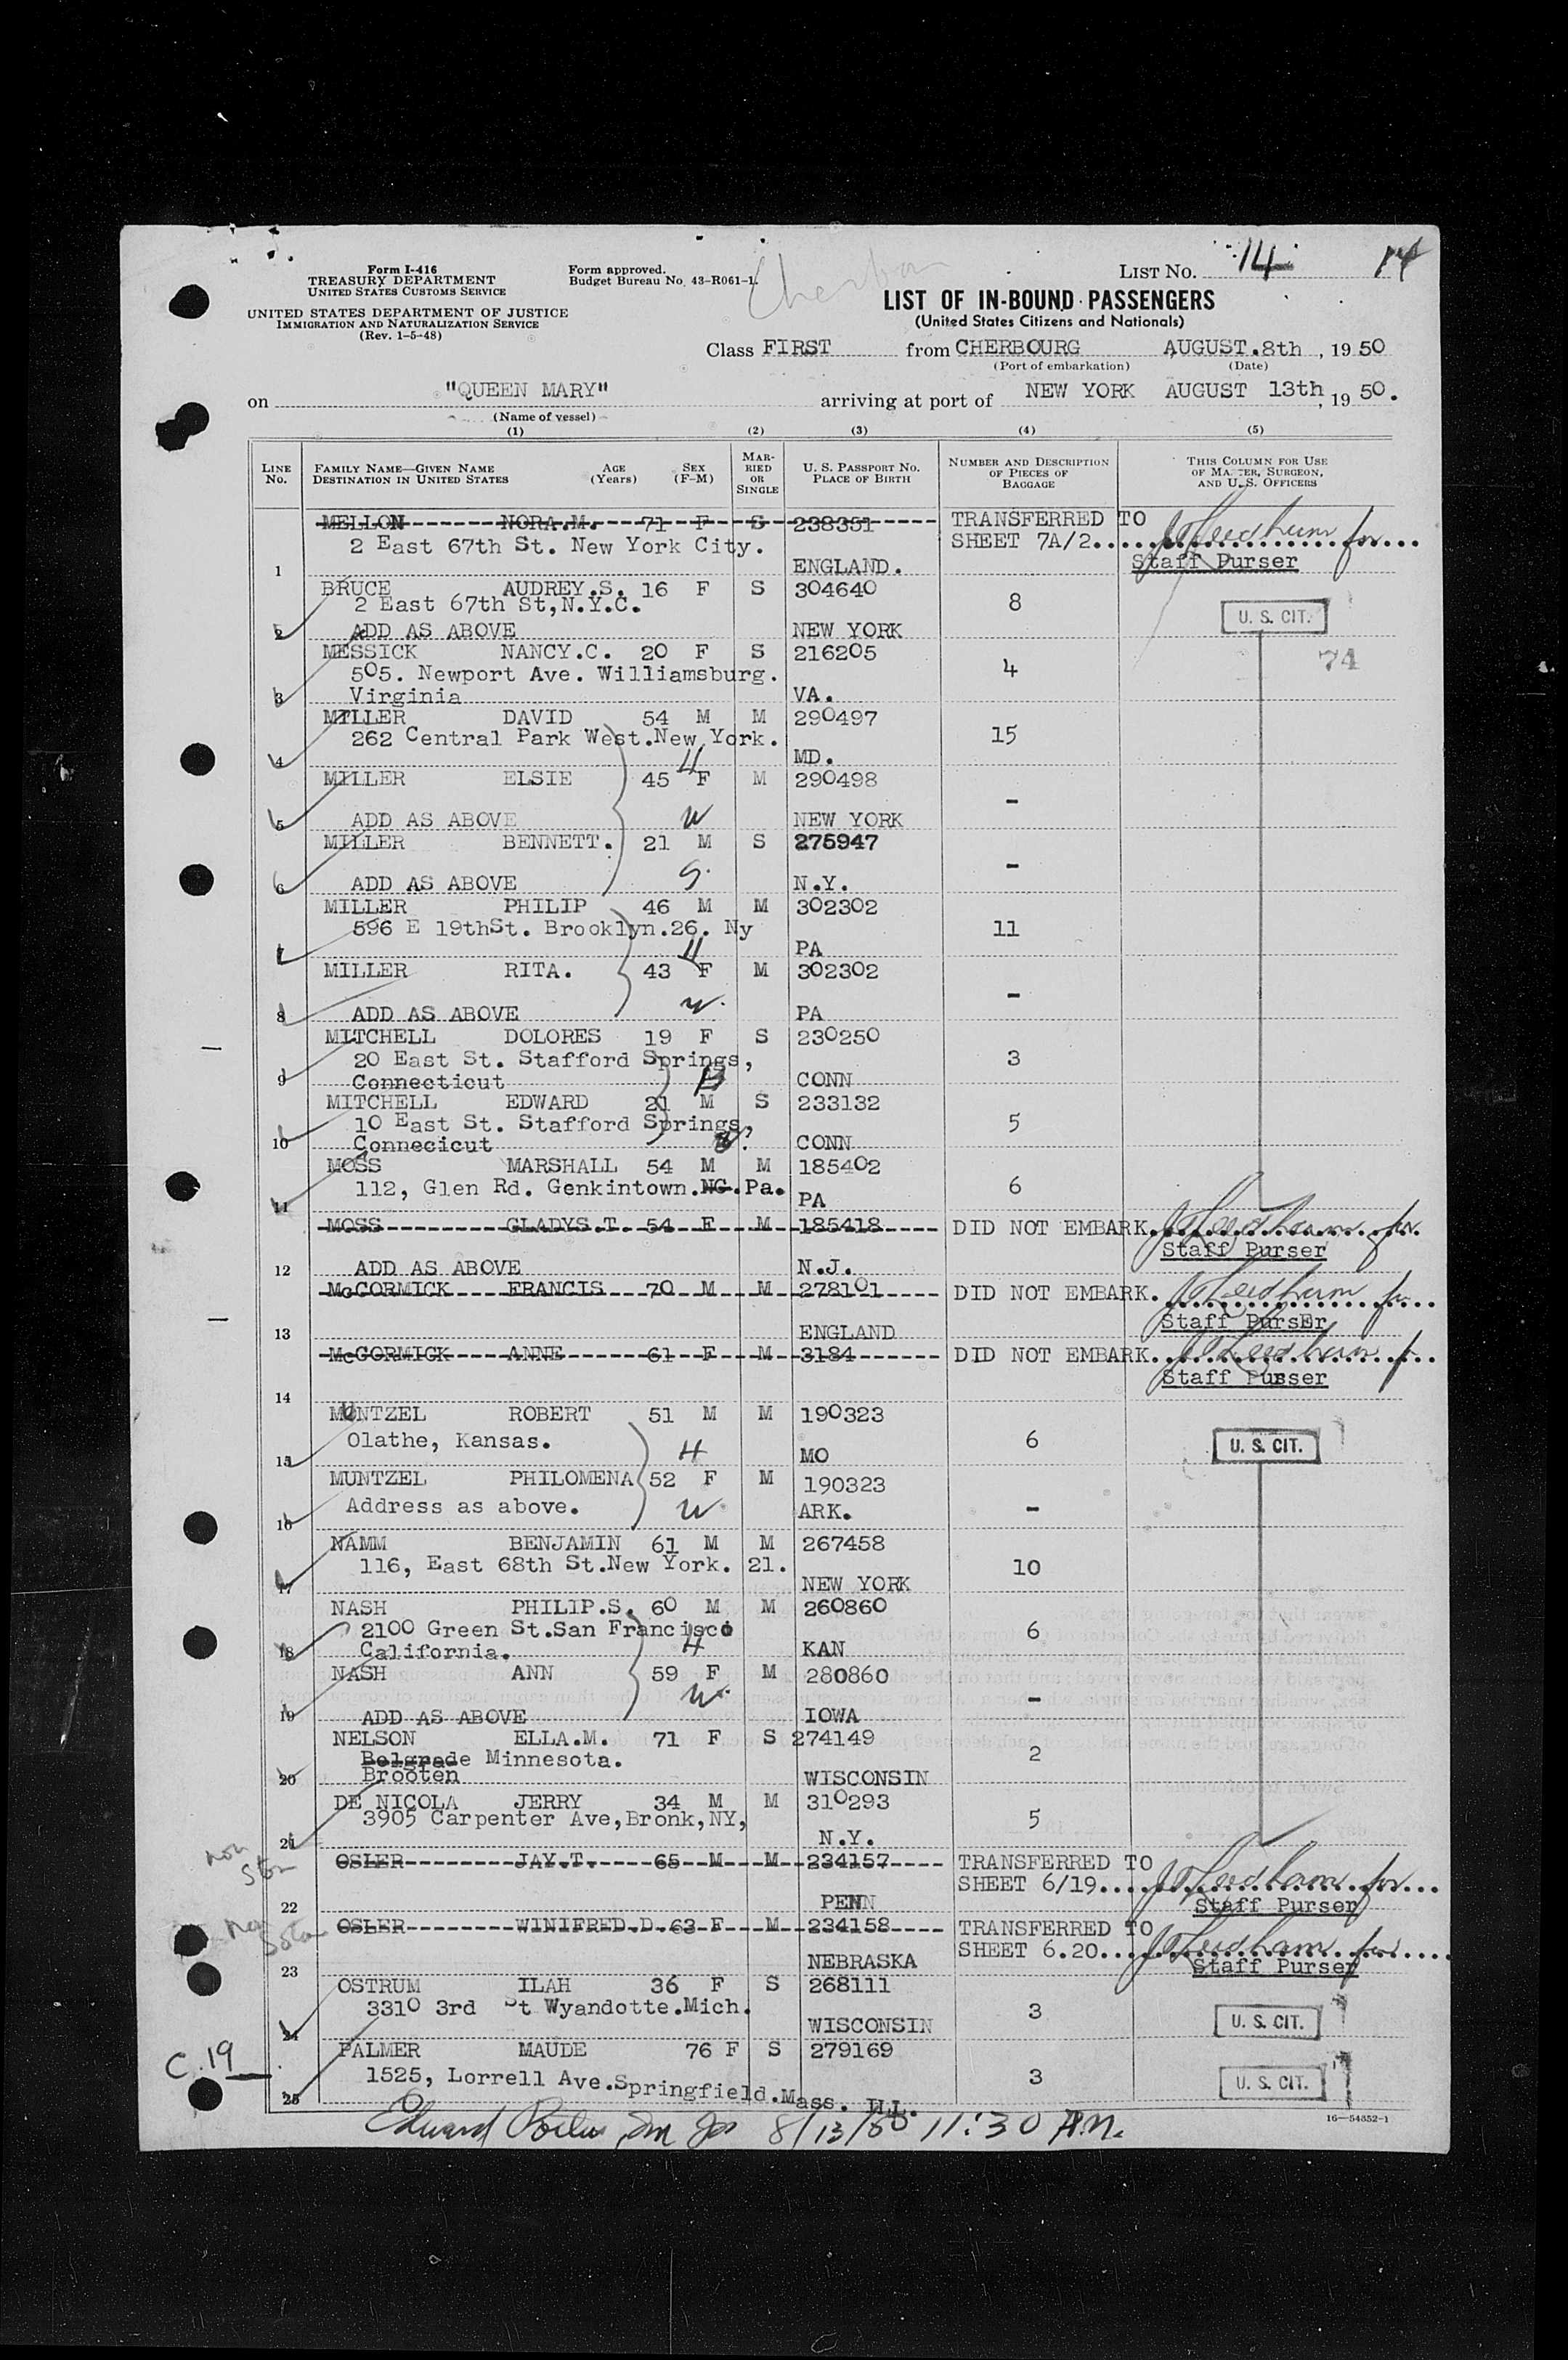 Form I-416
TREASURY DEPARTMENT
UNITED STATES CUSTOMS SERVICE
UNITED STATES DEPARTMENT OF JUSTICE
IMMIGRATION AND NATURALIZATION SERVICE
(Rev. 1-5-48)
Form approved.
Budget Bureau No. 43-R061-1.
LIST NO. 14 14
LIST OF IN-BOUND PASSENGERS
(United States Citizens and Nationals)
Class FIRST from CHERBOURG AUGUST.8th, 1950
(Port of embarkation) (Date)
on "QUEEN MARY" arriving at port of NEW YORK AUGUST 13th, 1950.
(Name of vessel)
(1) (2) (3) (4) (5)
LINE NO. FAMILY NAME—GIVEN NAME DESTINATION IN UNITED STATES AGE (Years) SEX (F-M) MARRIED OR SINGLE U. S. PASSPORT NO. PLACE OF BIRTH NUMBER AND DESCRIPTION OF PIECES OF BAGGAGE THIS COLUMN FOR USE OF MASTER, SURGEON, AND U. S. OFFICERS
MELLON NORA.M. 71 F S 238351 TRANSFERRED TO
2 East 67th St. New York City. SHEET 7A/2 for
1 ENGLAND. Staff Purser
BRUCE AUDREY.S. 16 F S 304640 8
2 East 67th St,N.Y.C. U. S. CIT.
2 ADD AS ABOVE NEW YORK
MESSICK NANCY.C. 20 F S 216205 4 74
505. Newport Ave. Williamsburg.
3 Virginia VA.
MILLER DAVID 54 M M 290497 15
262 Central Park West.New York.
4 H MD.
MILLER ELSIE 45 F M 290498 -
5 ADD AS ABOVE W NEW YORK
MILLER BENNETT. 21 M S 275947 -
6 ADD AS ABOVE S. N.Y.
MILLER PHILIP 46 M M 302302 11
596 E 19thSt. Brooklyn.26. Ny
7 H PA
MILLER RITA. 43 F M 302302 -
8 ADD AS ABOVE W. PA
MITCHELL DOLORES 19 F S 230250 3
20 East St. Stafford Springs,
9 Connecticut CONN
MITCHELL EDWARD 21 M S 233132 5
10 East St. Stafford Springs,
10 Connecicut CONN
MOSS MARSHALL 54 M M 185402 6
112, Glen Rd. Genkintown.NC.Pa.
11 PA
MOSS GLADYS.T. 54 F M 185418 DID NOT EMBARK. for
Staff Purser
12 ADD AS ABOVE N.J.
McCORMICK FRANCIS 70 M M 278101 DID NOT EMBARK.
Staff PursEr
13 ENGLAND
McCORMICK ANNE 61 F M 3184 DID NOT EMBARK.
Staff Purser
14
MUNTZEL ROBERT 51 M M 190323 6
Olathe, Kansas. H U. S. CIT.
15 MO
MUNTZEL PHILOMENA 52 F M 190323 -
16 Address as above. W. ARK.
NAMM BENJAMIN 61 M M 267458 10
116, East 68th St.New York. 21.
17 NEW YORK
NASH PHILIP.S. 60 M M 260860 6
2100 Green St.San Francisco
18 California. H KAN
NASH ANN 59 F M 280860 -
19 ADD AS ABOVE W. IOWA
NELSON ELLA.M. 71 F S 274149 2
Belgrade Minnesota.
20 Brooten WISCONSIN
DE NICOLA JERRY 34 M M 310293 5
3905 Carpenter Ave,Bronk,NY,
21 N.Y.
OSLER JAY.T. 65 M M 234157 TRANSFERRED TO
SHEET 6/19 for
22 PENN Staff Purser
OSLER WINIFRED.D. 63 F M 234158 TRANSFERRED TO
SHEET 6.20
23 NEBRASKA Staff Purser
OSTRUM ILAH 36 F S 268111 3
3310 3rd St Wyandotte.Mich. U. S. CIT.
24 WISCONSIN
PALMER MAUDE 76 F S 279169 3
C.19
1525, Lorrell Ave.Springfield.Mass. ILL. U. S. CIT.
25
16—54352-1
Edward 8/13/50 11:30 A.M.